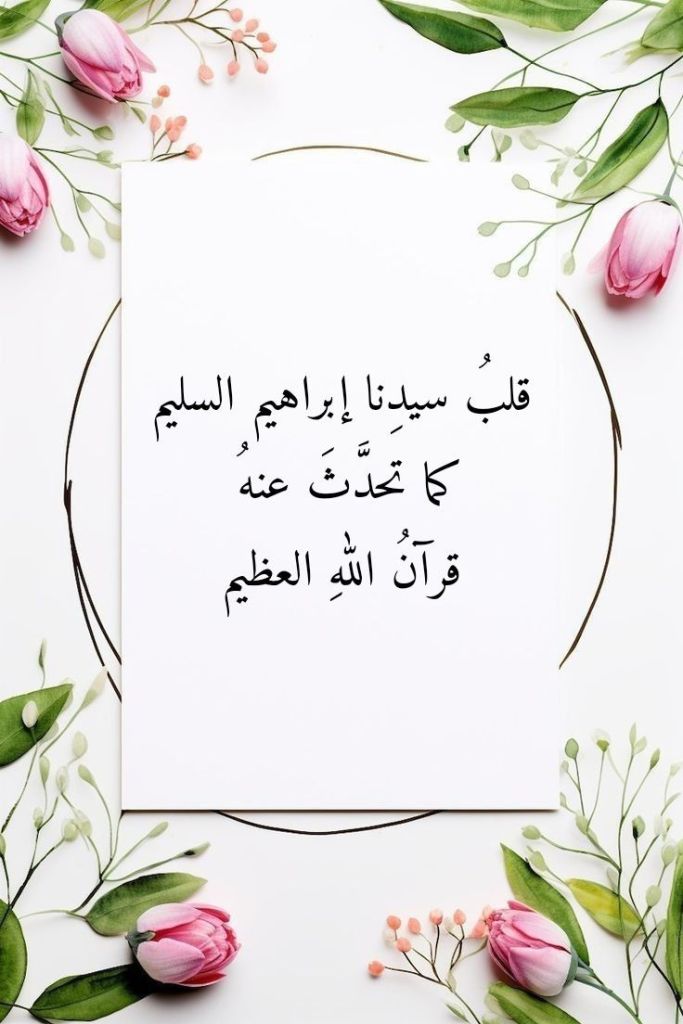 قلبُ سيدِنا إبراهيم السليم
كما تحدَّثَ عنهُ
قرآنُ اللهِ العظيم